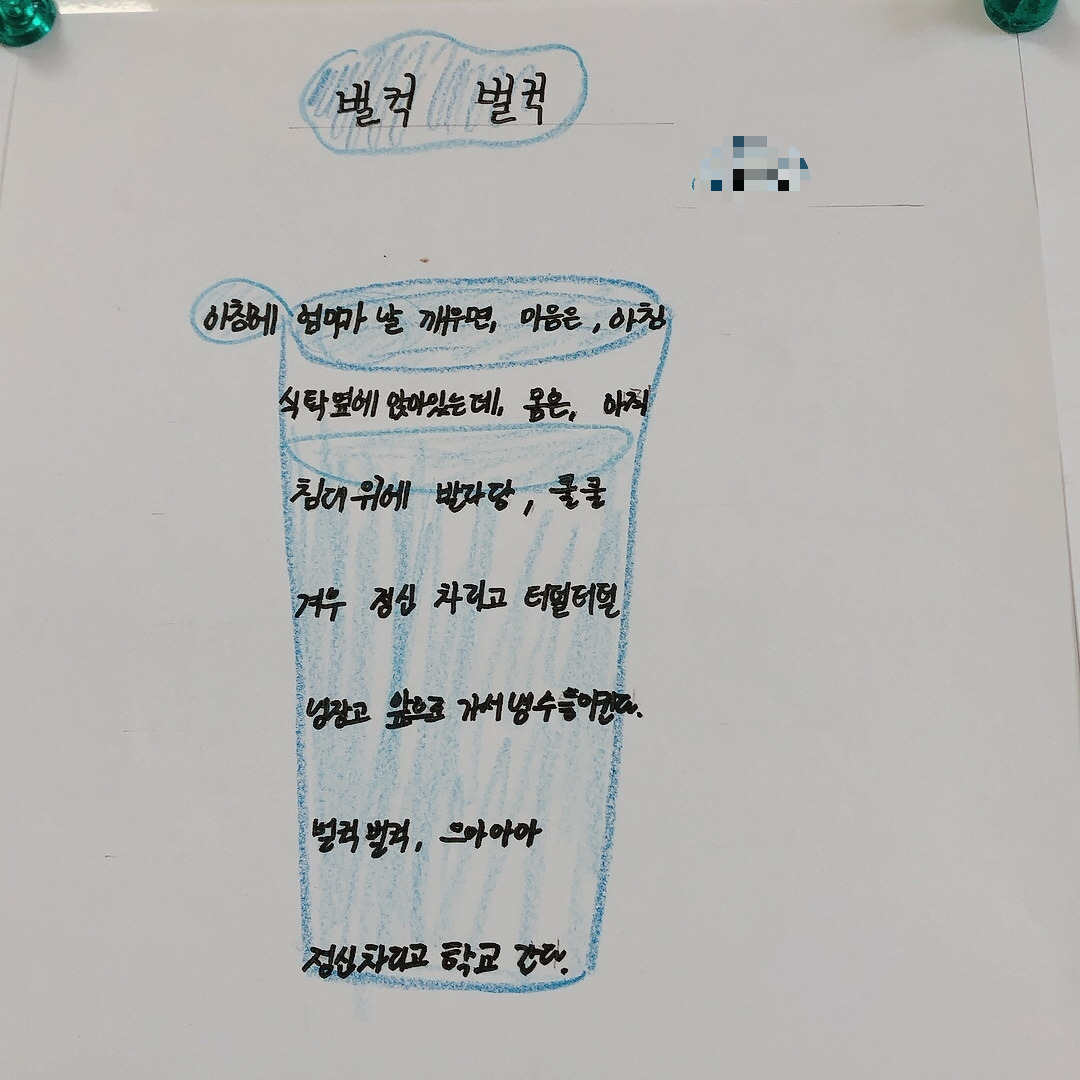 벌컥 벌컥
아침에 엄마가 날 깨우면, 마음은, 아침
식탁옆에 앉아있는데, 몸은, 아직
침대 위에 발라당, 쿨쿨
겨우 정신 차리고 터덜터덜
냉장고 앞으로 가서 냉수 들이킨다.
벌컥벌컥, 으아아아
정신차리고 학교 간다.